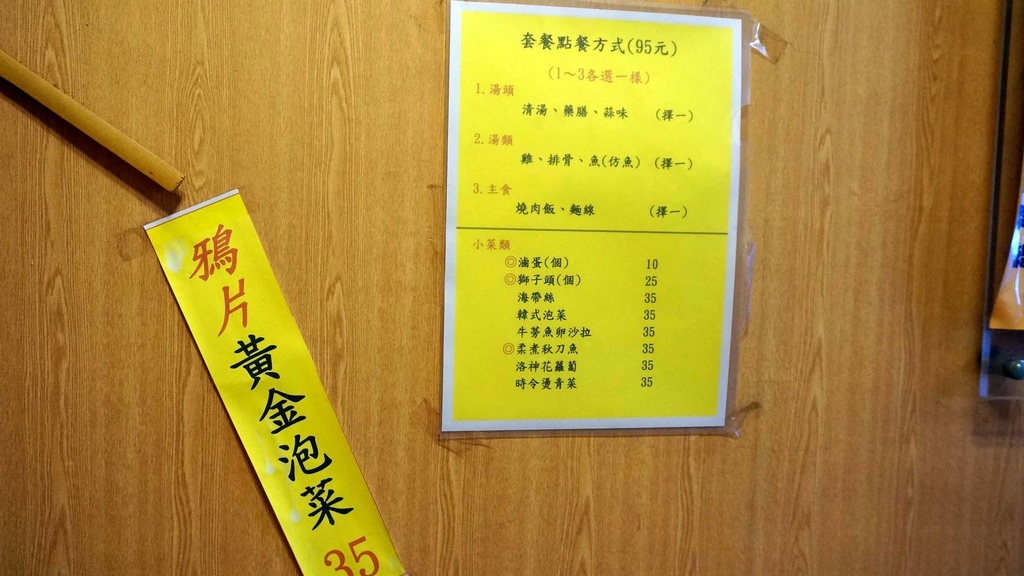 套餐點餐方式(95元)
(1~3各選一樣)
1.湯頭
清湯、藥膳、蒜味 (擇一)
2.湯類
雞、排骨、魚(仿魚) (擇一)
3.主食
燒肉飯、麵線 (擇一)
小菜類
◎滷蛋(個) 10
◎獅子頭(個) 25
海帶絲 35
韓式泡菜 35
牛蒡魚卵沙拉 35
◎柔煮秋刀魚 35
洛神花蘿蔔 35
時令燙青菜 35
鴉片黃金泡菜35